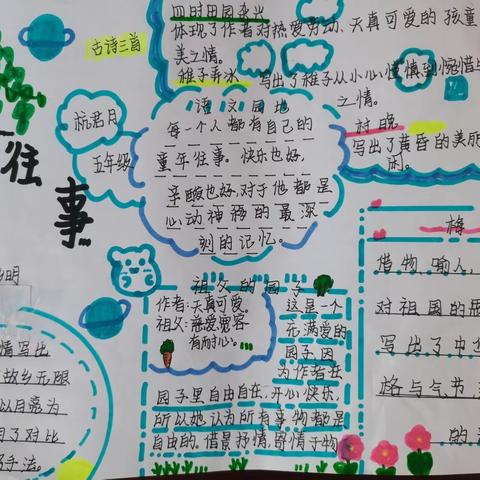 四时田园杂兴
体现了作者对热爱劳动、天真可爱的孩童
美之情。
古诗三首
稚子弄冰
写出了稚子从小心谨慎到惋惜
之情。
村晚
写出了黄昏的美丽
闲。
杭君月
五年级
往
事
语文园地
每一个人都有自己的
童年往事。快乐也好,
辛酸也好,对于他都是
心动神移的最深
刻的记忆。
祖父的园子
作者:天真可爱。
祖父:慈爱宽容
有耐心。
这是一个
充满爱的
园子,因
为作者在
园子里自由自在,开心快乐,
所以她认为所有事物都是
自由的,借景抒情,寄情于物
梅
借物喻人,
对祖国的
写出了中
格与气节
的
明
情写出
故乡无限
以月亮为
用了对比
手法。